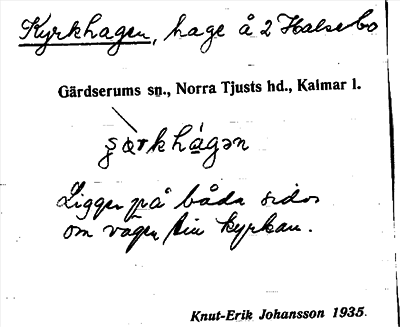 Kyrkhagen, hage å 2 Halsebo
Gärdserums sn., Norra Tjusts hd., Kalmar l.
Ligger på båda sidor
om vägen till kyrkan.
Knut-Erik Johansson 1935.